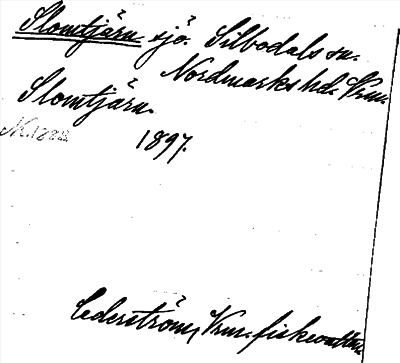 Slomtjärn sjö. Silbodals sn.
Nordmarks hd. Vrm.
Slomtjärn
1897.
Cederström, Vrm. fiskevatten